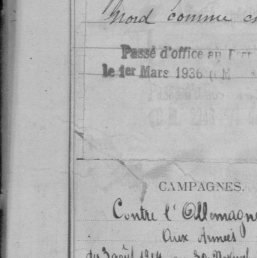 Nord comme
Passé d'office au
le 1er Mars 1936
CAMPAGNES.
Contre l'Allemagne
Aux Armées
du 3 août 1914